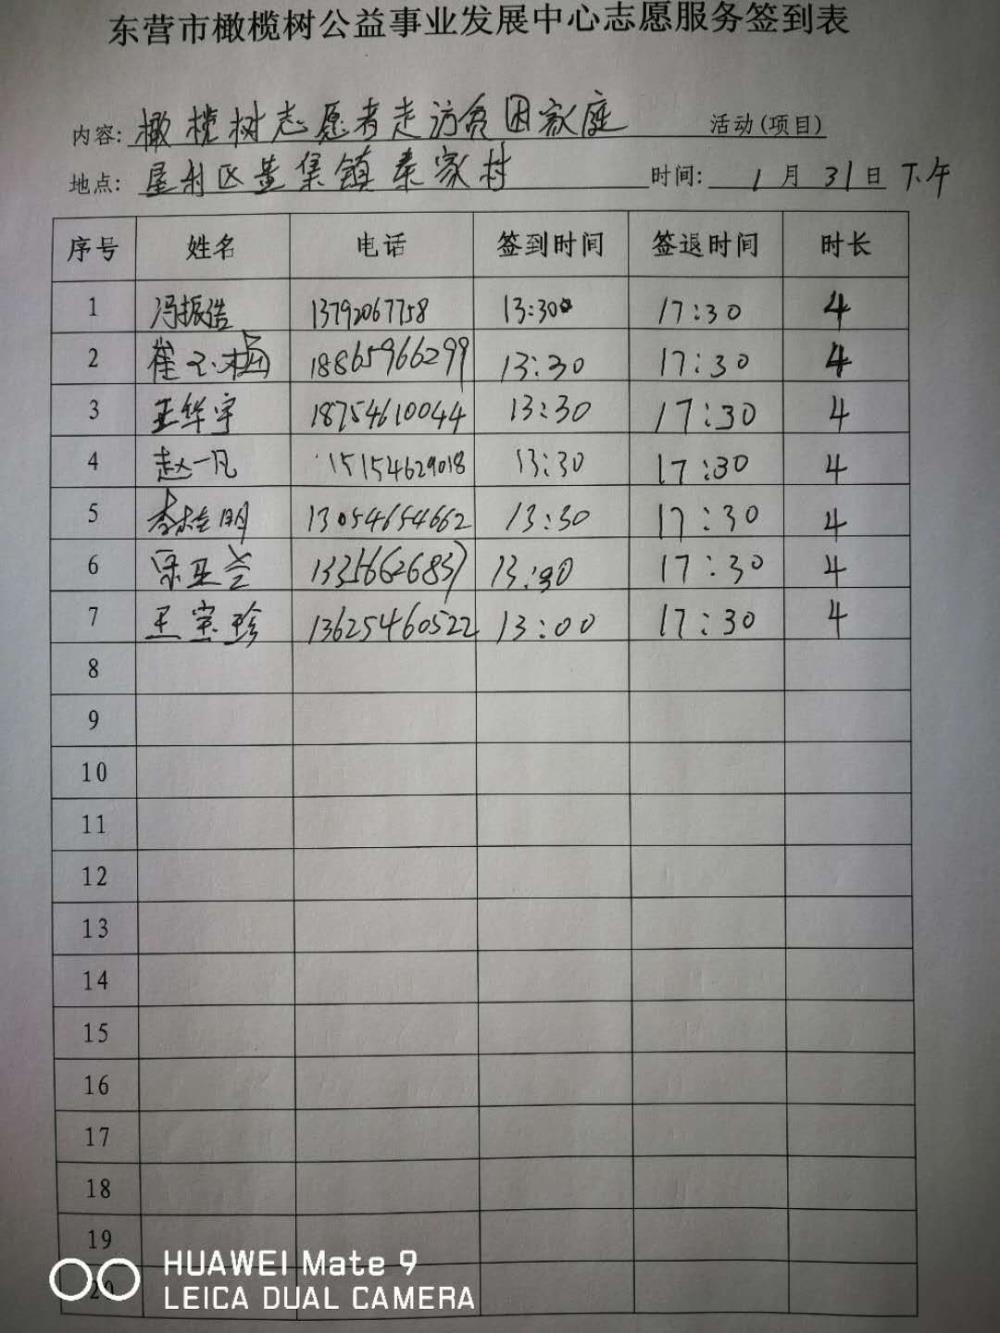 东营市橄榄树公益事业发展中心志愿服务签到表
内容: 橄榄树志愿者走访贫困家庭 活动(项目)
地点: 垦利区董集镇秦家村 时间: 1 月 31 日 下午
序号 姓名 电话 签到时间 签退时间 时长
1 冯振浩 13792067758 13:30 17:30 4
2 崔玉梅 18865966299 13:30 17:30 4
3 王华宇 18754610044 13:30 17:30 4
4 赵一凡 15154629018 13:30 17:30 4
5 李桂明 13054654662 13:30 17:30 4
6 宋亚兰 13356626837 13:30 17:30 4
7 王宝珍 13625460522 13:00 17:30 4
8
9
10
11
12
13
14
15
16
17
18
19
20
HUAWEI Mate 9
LEICA DUAL CAMERA